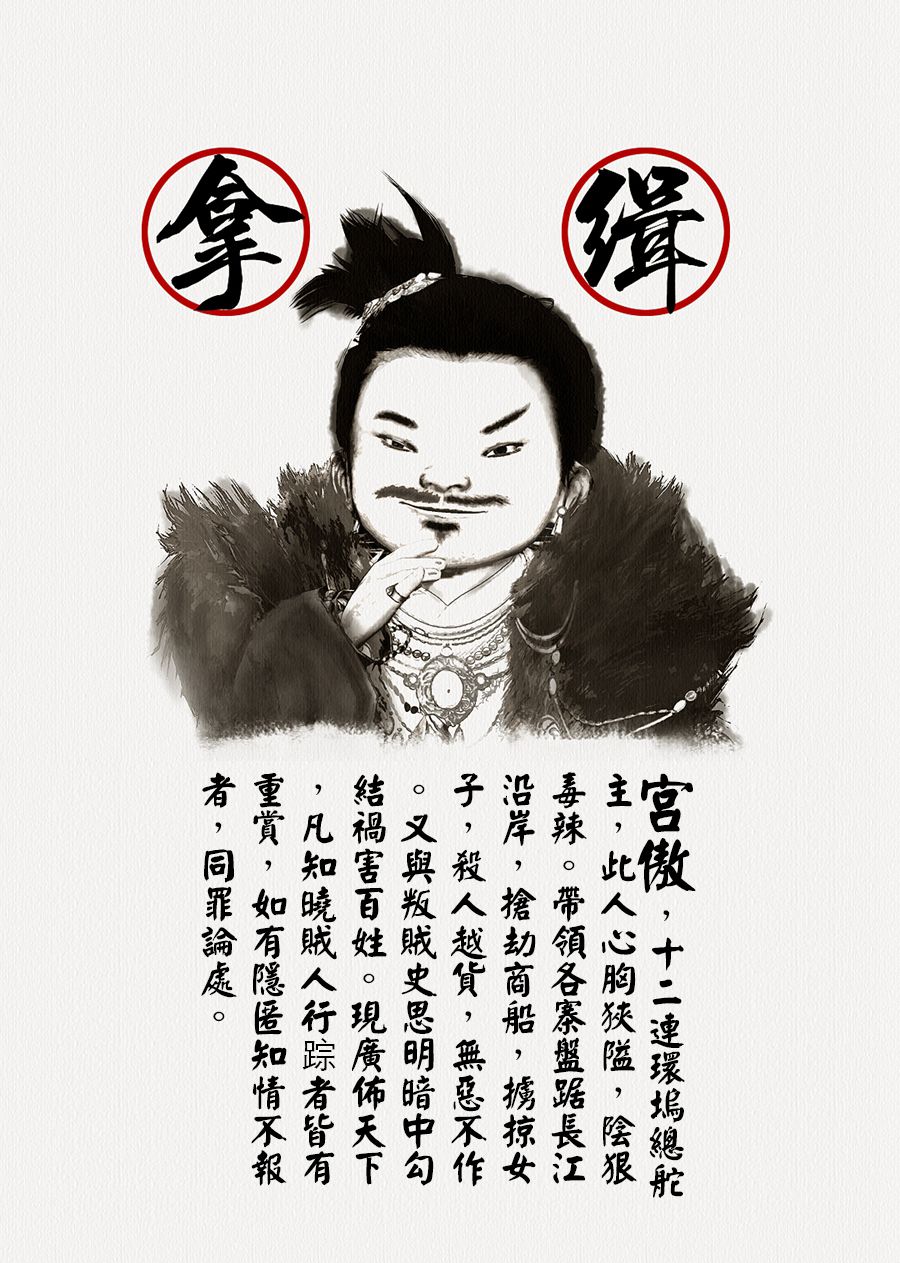 緝拿
宮傲，十二連環塢總舵
主，此人心胸狹隘，陰狠
毒辣。帶領各寨盤踞長江
沿岸，搶劫商船，擄掠女
子，殺人越貨，無惡不作
。又與叛賊史思明暗中勾
結禍害百姓。現廣佈天下
，凡知曉賊人行踪者皆有
重賞，如有隱匿知情不報
者，同罪論處。